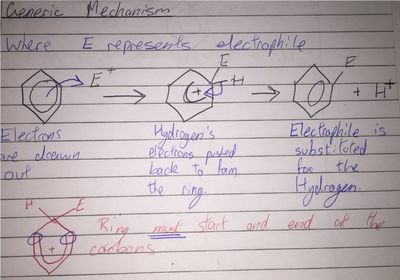 Generic Mechanism
Where E represents electrophile
E+
E
H
+
E
+ H+
Electrons
are drawn
out
Hydrogen's
electrons pushed
back to form
the ring.
Electrophile is
substituted
for the
Hydrogen.
H E
+
Ring must start and end at the
carbons